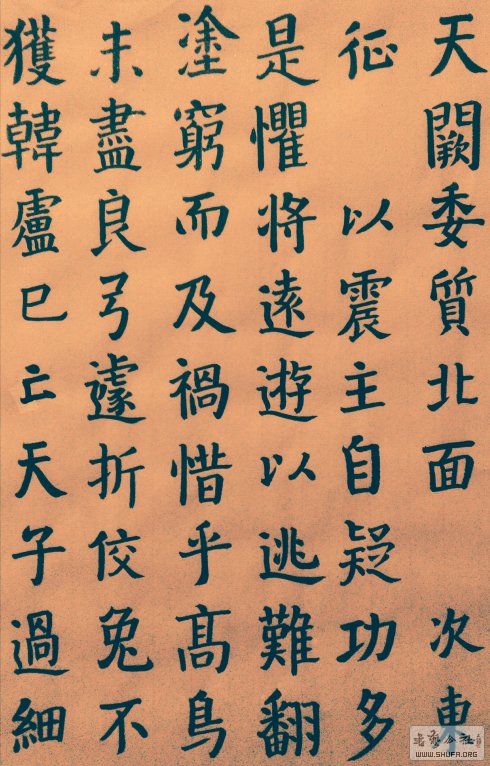 天闕委質北面　次東
征　以震主自疑功多
是懼將遠遊以逃難翻
塗窮而及禍惜乎高鳥
未盡良弓遽折佼兔不
獲韓盧已亡天子過細
WWW.SHUFA.ORG